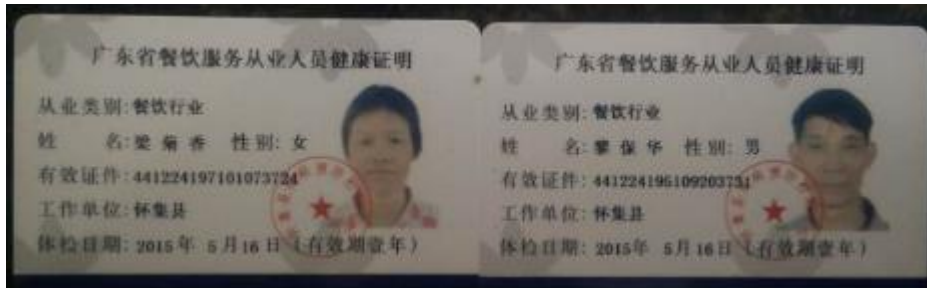 广东省餐饮服务从业人员健康证明
从业类别:餐饮行业
姓 名:梁菊香 性别:女
有效证件:441224197101073724
工作单位:怀集县
体检日期:2015年 5月16日(有效期壹年)
广东省餐饮服务从业人员健康证明
从业类别:餐饮行业
姓 名:黎保华 性别:男
有效证件:441224196109203731
工作单位:怀集县
体检日期:2015年 5月16日(有效期壹年)